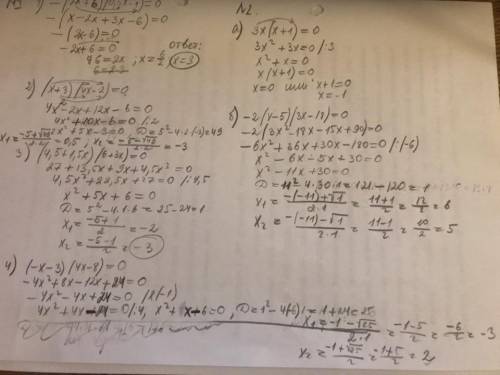 -(x-2x+3x-6)=0
-(2x-6)=0
-2x+6=0
ответ:
+6=2x ; x=6/2 x=3
2) (x+3)(4x-2)=0
4x²-2x+12x-6=0
4x²+10x-6=0 /:2
2x²+5x-3=0, D=5²-4·2·(-3)=49
x₁=(-5+√49)/(2·2)=0,5 , x₂=(-5-√49)/(2·2)=-3
3) (4,5+1,5x)(6+3x)=0
27+13,5x+9x+4,5x²=0
4,5x²+22,5x+27=0 /:4,5
x²+5x+6=0
D=5²-4·1·6=25-24=1
x₁=(-5+1)/2=-2
x₂=(-5-1)/2=-3
4) (-x-3)(4x-8)=0
-4x²+8x-12x+24=0
-4x²-4x+24=0 /·(-1)
4x²+4x-24=0 /:4, x²+x-6=0, D=1²-4(-6)·1=1+24=25
x₁=(-1-√25)/(2·1)=(-1-5)/2=-6/2=-3
x₂=(-1+√25)/2=(-1+5)/2=2
N2.
а) 3x(x+1)=0
3x²+3x=0 /:3
x²+x=0
x(x+1)=0
x=0 или x+1=0
x=-1
б) -2(x-5)(3x-18)=0
-2(3x²-18x-15x+90)=0
-6x²+36x+30x-180=0 /:(-6)
x²-6x-5x+30=0
x²-11x+30=0
D=11²-4·30·1=121-120=1
x₁=(-(-11)+√1)/(2·1)=(11+1)/2=12/2=6
x₂=(-(-11)-√1)/(2·1)=(11-1)/2=10/2=5